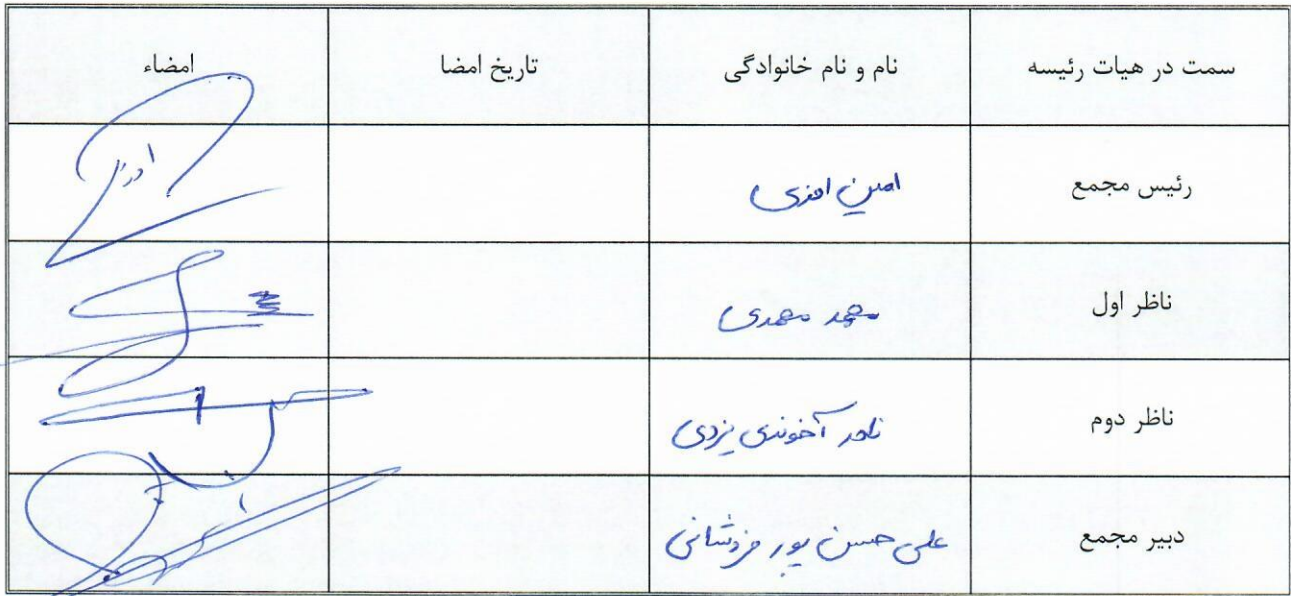 سمت در هیات رئیسه نام و نام خانوادگی تاریخ امضا امضاء
رئیس مجمع امین
ناظر اول محمد محمدی
ناظر دوم نادر آخوندی یزدی
دبیر مجمع علی حسن پور